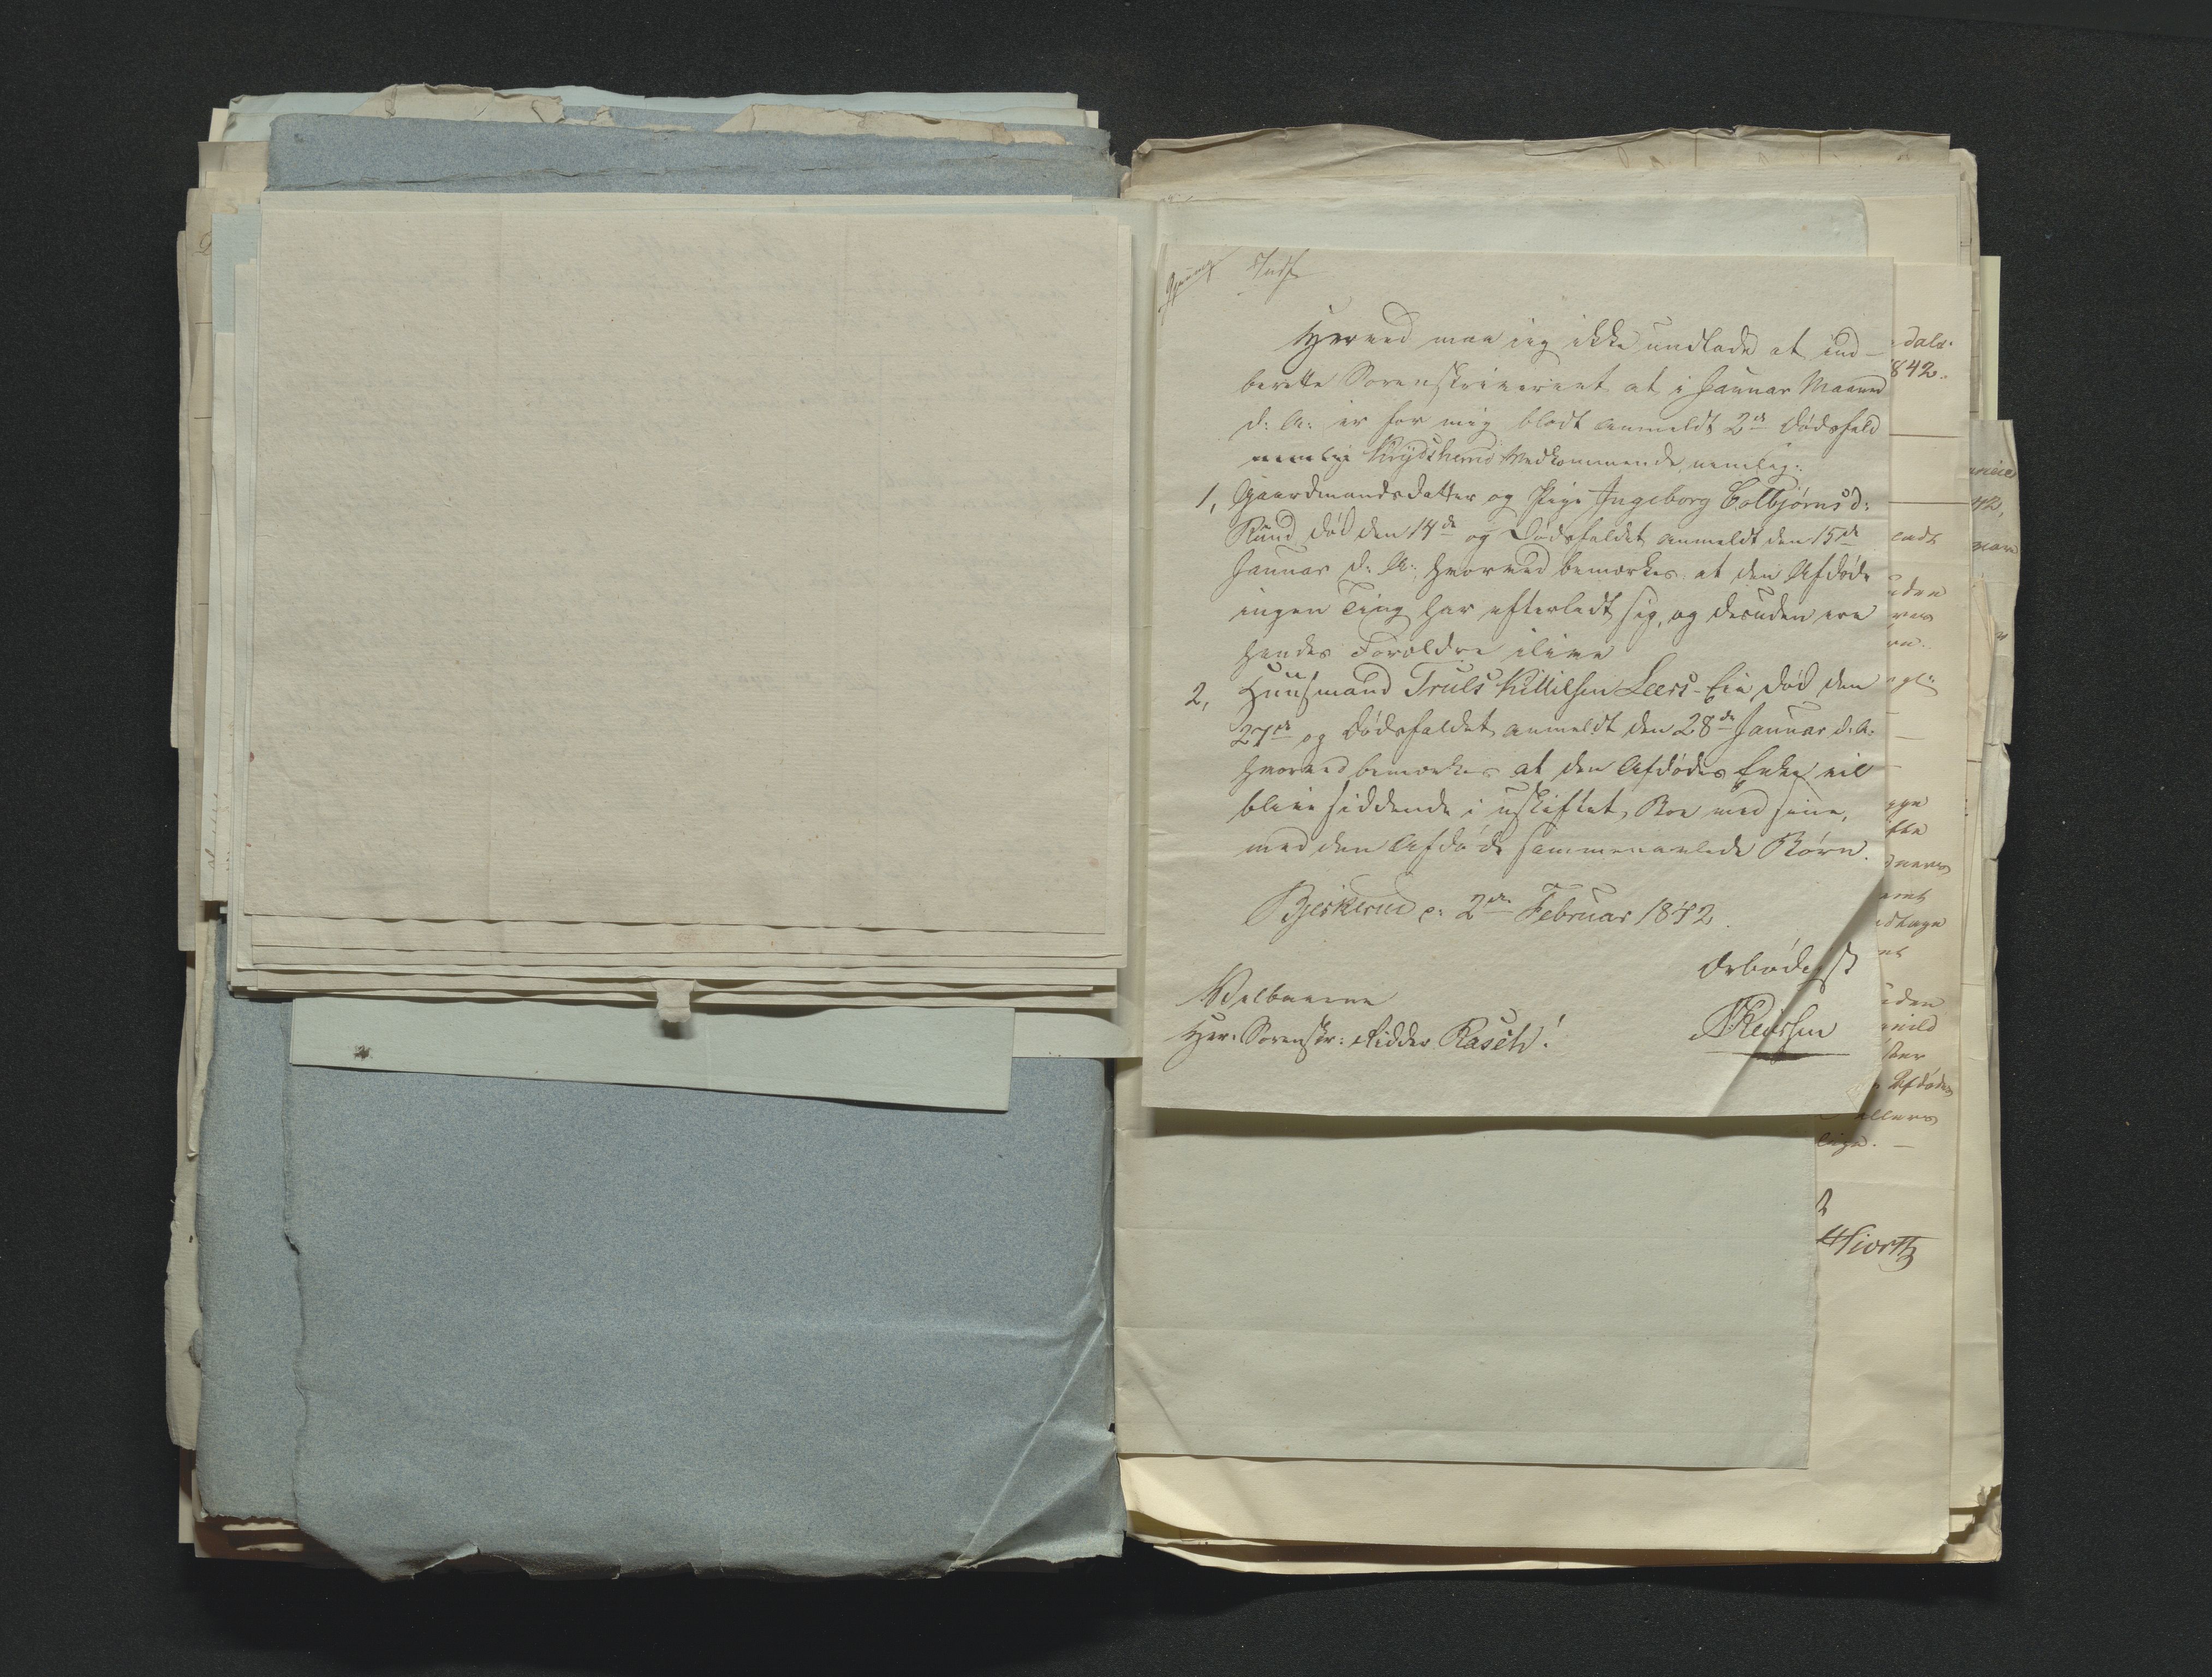 Indf
Herved maa jeg ikke undlade at ind-
berette Sorenskriveriet at i Januar Maaned
d: A: er for mig blodt anmeldt 2de Dødsfald
nemlig Krydsherred Vedkommende, nemlig:
1, Gaardmandsdatter og Pige Ingeborg Colbjørnsd:
Ruud død den 14de og Dødsfaldet anmeldt den 15de
Januar d: A: hvorved bemærkes at den Afdøde
ingen Ting har efterladt sig, og desuden ere
hendes Forældre ilive
2, Huusmand Truls Killilsen Leers-Eie død den
27de og Dødsfaldet anmeldt den 28de Januar d: A:
hvorved bemærkes at den Afdødes Enke vil
blive siddende i uskiftet Boe med sine,
med den Afdøde sammenavlede Børn.
Bjerkerud d: 2den Februar 1842.
Ærbødigst
Velbaarne
Her: Sorenskr: Ridder Rasch!
dale
1842.
Afdødes
Hiorth